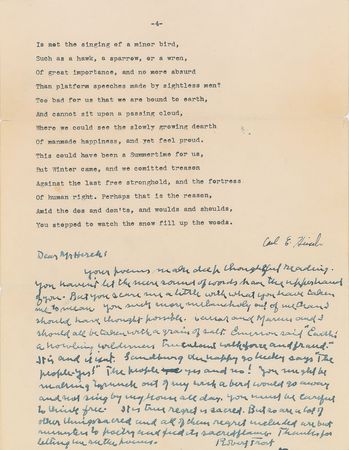 -4-
Is not the singing of a minor bird,
Such as a hawk, a sparrow, or a wren,
Of great importance, and no more absurd
Than platform speeches made by sightless men?
Too bad for us that we are bound to earth,
And cannot sit upon a passing cloud,
Where we could see the slowly growing dearth
Of manmade happiness, and yet feel proud.
This could have been a Summertime for us,
But Winter came, and we comitted treason
Against the last free stronghold, and the fortress
Of human right. Perhaps that is the reason,
Amid the dos and don'ts, and woulds and shoulds,
You stopped to watch the snow fill up the woods.
Carl E.
Dear Mr
Your poems make deep thoughtful reading.
You haven't let the mere sound of words have the upper hand
of you. But you scare me a little with what you have taken
me to mean. You such more melancholy out of me than I
should have thought possible. and Marcus and I
should all be taken with a grain of salt. Emerson said Earth's
a howling wilderness Truculent with force and fraud.
It is and it isn't. Something unhappy so lucky says The
people Yes! The people yes and no! You might be
making too much out of my wish a bird would go away
and not sing by my house all day. You must be careful
to think free. It is true regret is sacred. But so are a lot of
other things sacred and all of them regret included are but
ministers to poetry and feed its sacred flame. Thanks for
letting me see the poems.
Robert Frost